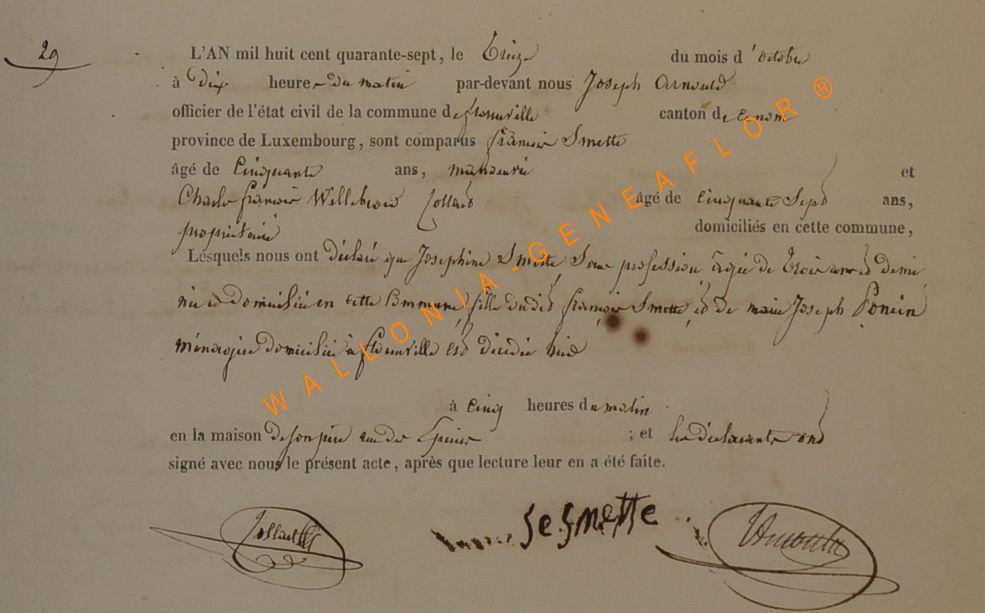 29
L'AN mil huit cent quarante-sept, le treize du mois d'octobre
à dix heures du matin par-devant nous Joseph Arnould
officier de l'état civil de la commune de florenville canton de
province de Luxembourg, sont comparus françois Smette
âgé de Cinquante ans, manoeuvre et
Charles françois Willebrord Collard âgé de cinquante Sept ans,
propriétaire domiciliés en cette commune,
Lesquels nous ont déclaré que Josephine Smette Sans profession âgée de trois ans et demi
née et domiciliée en cette Commune fille dudit françois Smette et de marie Joseph Poncin
ménagère domiciliée à florenville est décédée hier
à Cinq heures du matin
en la maison de son père rue des Epines ; et les déclarants ont
signé avec nous le présent acte, après que lecture leur en a été faite.
Collard Se Smette Arnould
WALLONIA-GENEAFLOR®